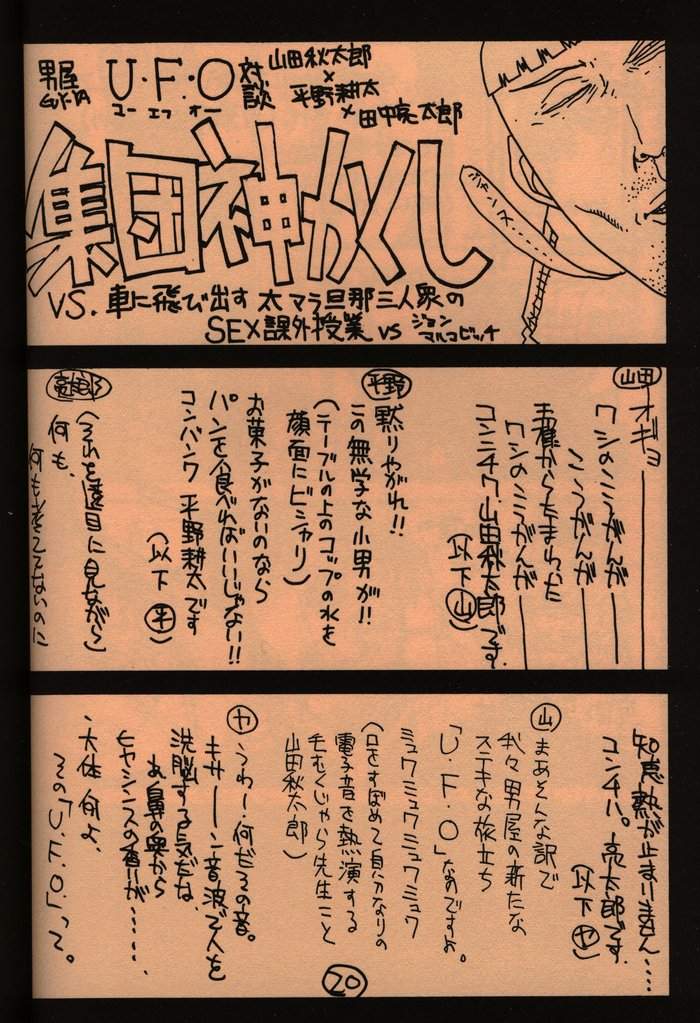 男屋
U・F・O
ユー エフ オー
対談
山田秋太郎
×
平野耕太
×田中亮太郎
集団神かくし
VS. 車に飛び出す 太マラ旦那三人衆の
SEX課外授業 VS ジョン
マルコビッチ
山田
オギョ――
ワシのこうがんが――
こうがんが――
王様からたまわった
ワシのこうがんが――
コンニチワ、山田秋太郎です。
(以下 山)
平野
黙りやがれ!!
この無学な小男が!!
(テーブルの上のコップの水を
顔面にビシャリ)
お菓子がないのなら
パンを食べればいいじゃない!!
コンバンワ 平野耕太です
(以下 平)
亮太郎
(それを遠目に見ながら)
何も、
何も考えてないのに
知恵熱が止まりません……
コンチハ。亮太郎です。
(以下 ヤ)
山
まあそんな訳で
我々男屋の新たな
ステキな旅立ち
「U・F・O」なのですよ。
ミュウミュウミュウミュウ
(口をすぼめて自分なりの
電子音を熱演する
毛むくじゃら先生こと
山田秋太郎)
ヤ
うわー、何だその音。
キサーン音波で人を
洗脳する気だな、
お鼻の奥から
ヒヤシンスの香りが……、
、大体何よ、
その「U・F・O」って。
20